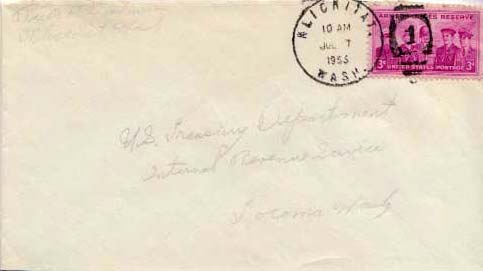 KLICKITAT
10 AM
JUL 7
1955
WASH.
ARMED FORCES RESERVE
1
3¢ 3¢
UNITED STATES POSTAGE
U.S. Treasury Department
Internal Revenue Service
Tacoma Wash